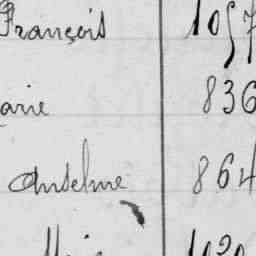 François 1057
arie 836
Anselme 864